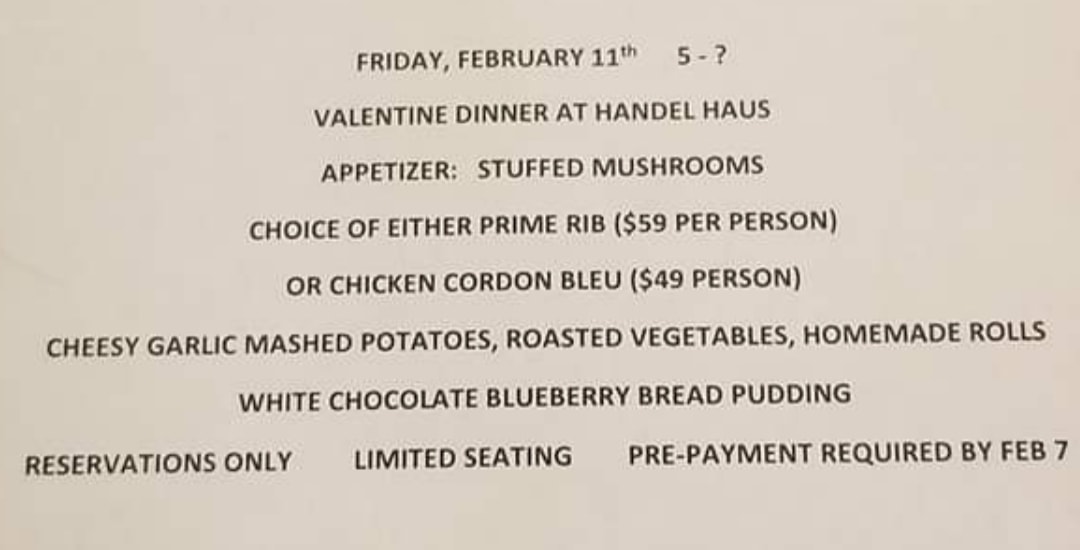 FRIDAY, FEBRUARY 11th 5 - ?
VALENTINE DINNER AT HANDEL HAUS
APPETIZER: STUFFED MUSHROOMS
CHOICE OF EITHER PRIME RIB ($59 PER PERSON)
OR CHICKEN CORDON BLEU ($49 PERSON)
CHEESY GARLIC MASHED POTATOES, ROASTED VEGETABLES, HOMEMADE ROLLS
WHITE CHOCOLATE BLUEBERRY BREAD PUDDING
RESERVATIONS ONLY LIMITED SEATING PRE-PAYMENT REQUIRED BY FEB 7